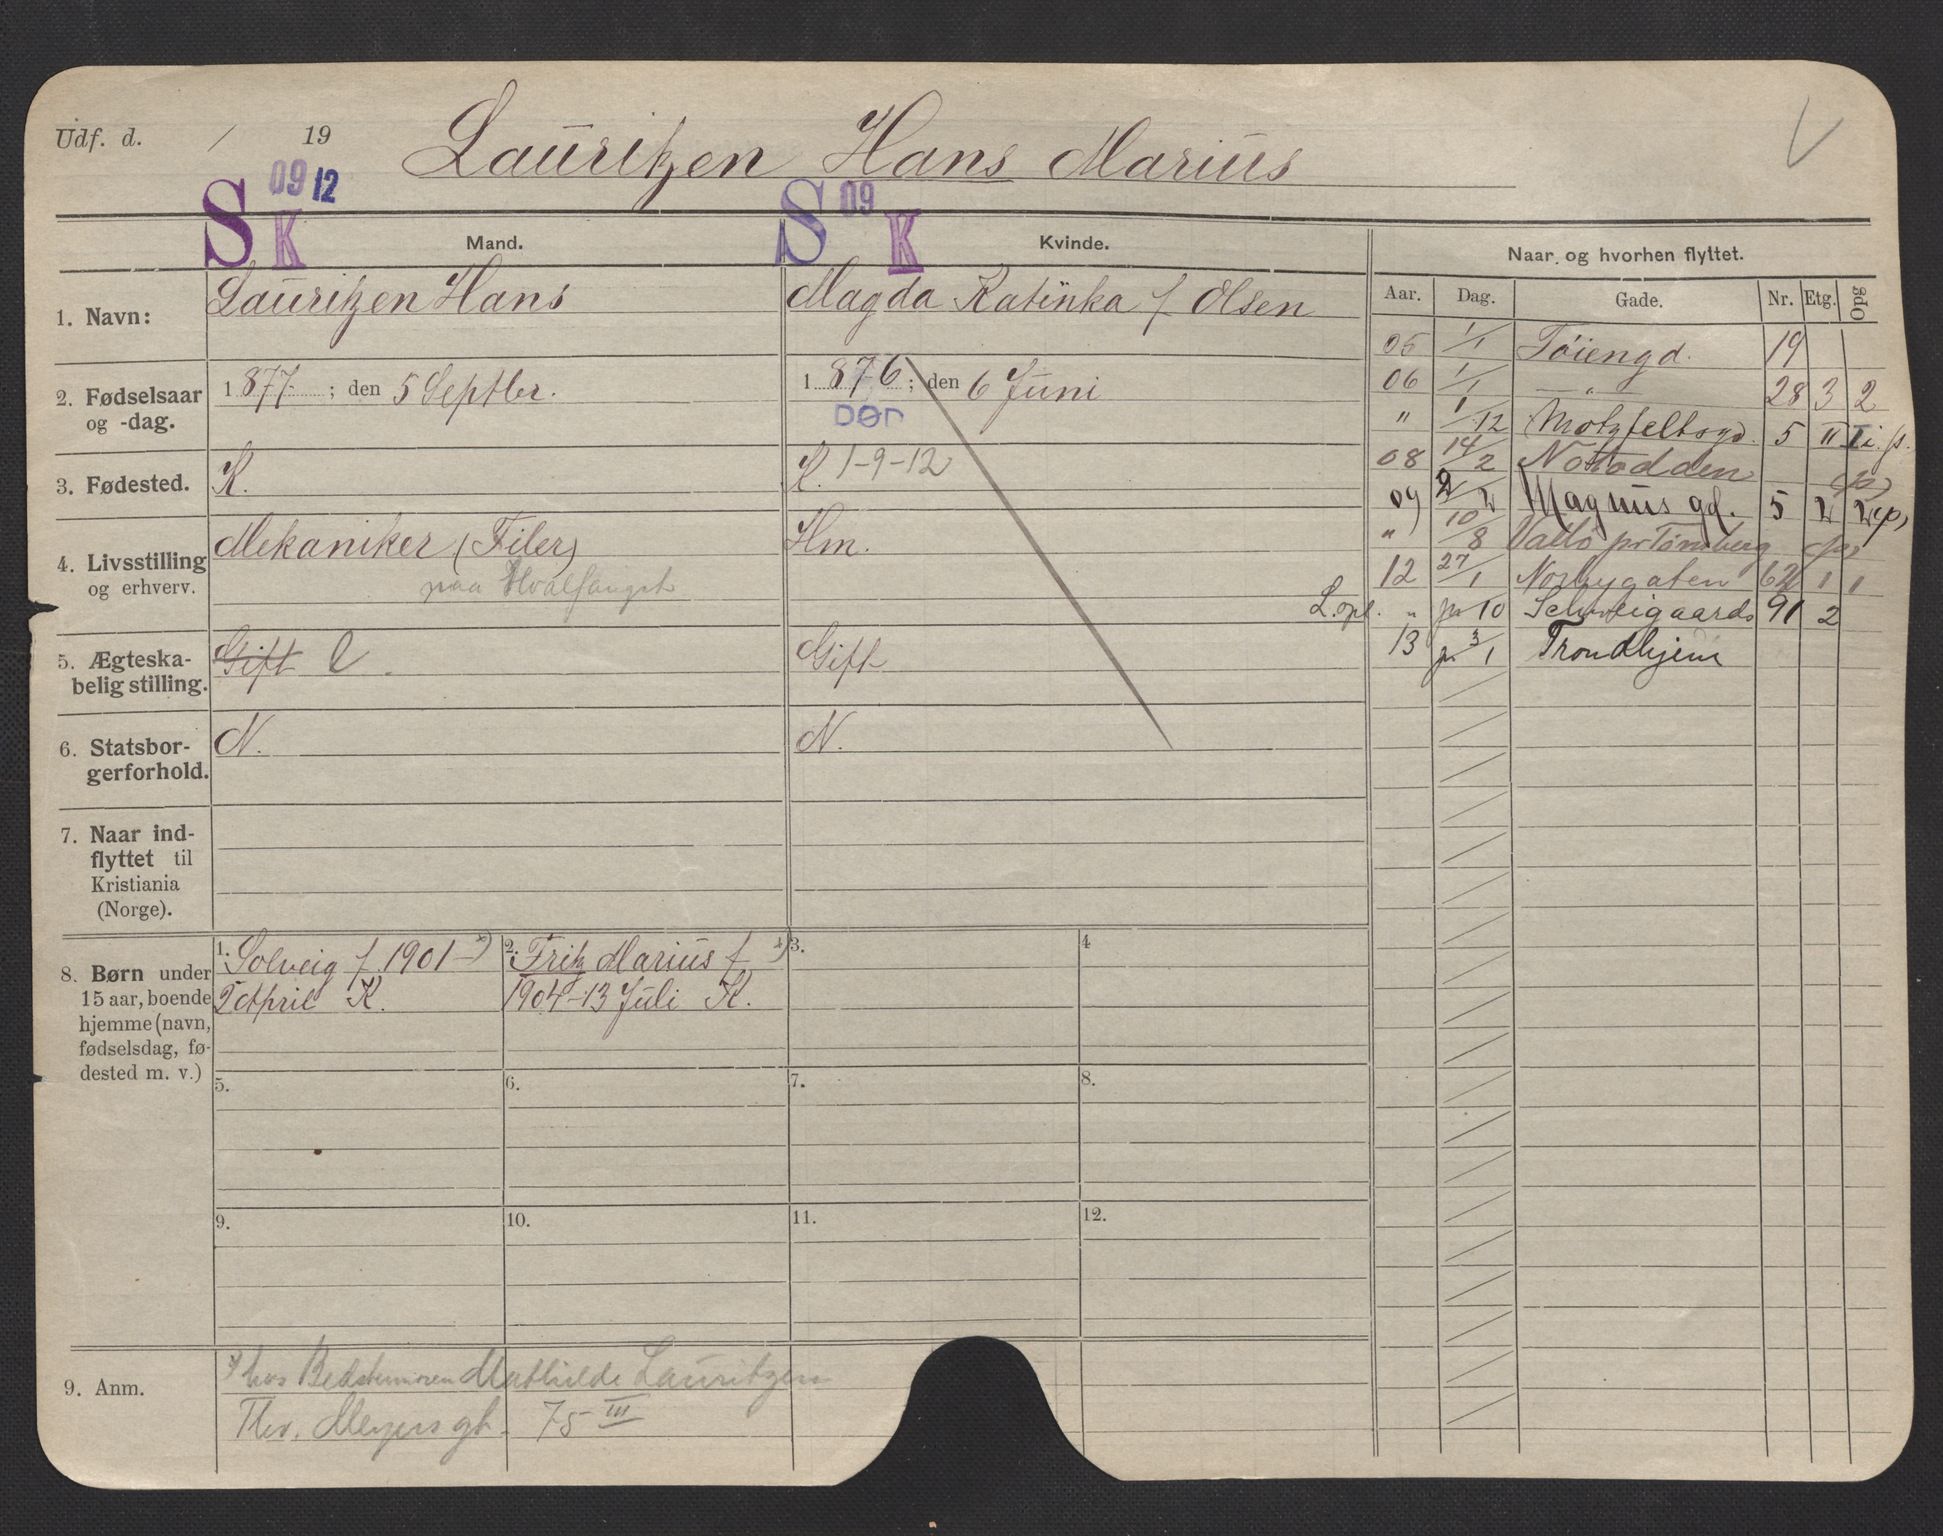 Udf. d. / 19
Lauritzen Hans Marius
S 09 12 K
S 09 K
Mand.
Kvinde.
Naar og hvorhen flyttet.
Aar. Dag. Gade. Nr. Etg. Opg
1. Navn:
Lauritzen Hans
Magda Katinka f Olsen
2. Fødselsaar
og -dag.
1877 ; den 5 Septbr.
1876 ; den 6 Juni
DØD
1-9-12
3. Fødested.
K.
K.
4. Livsstilling
og erhverv.
Mekaniker (Filer)
paa Hvalfangst
Hm.
5. Ægteska-
belig stilling.
Gift E.
Gift
6. Statsbor-
gerforhold.
N.
N.
7. Naar ind-
flyttet til
Kristiania
(Norge).
05 1/1 Tøiengd. 19
06 1/1 — " — 28 3 2
" 1/12 Motzfeltsgd. 5 II I i. g.
08 14/2 Notodden
09 2/2 Magnus gd. 5 2 2
" 10/8 Vallø pr Tønsberg
12 27/1 Norbygaten 62 1 1
L. opl. " pr 10 Schweigaards 91 2
13 pr 3/1 Trondhjem
8. Børn under
15 aar, boende
hjemme (navn,
fødselsdag, fø-
dested m. v.)
1. Solveig f. 1901 x)
2 April K.
2. Fritz Marius f x)
1904-13 Juli K.
3.
4
5.
6.
7.
8.
9.
10.
11.
12.
9. Anm.
x) hos Bedstemoren Mathilde Lauritzen
Thv. Meyers gt. 75 III